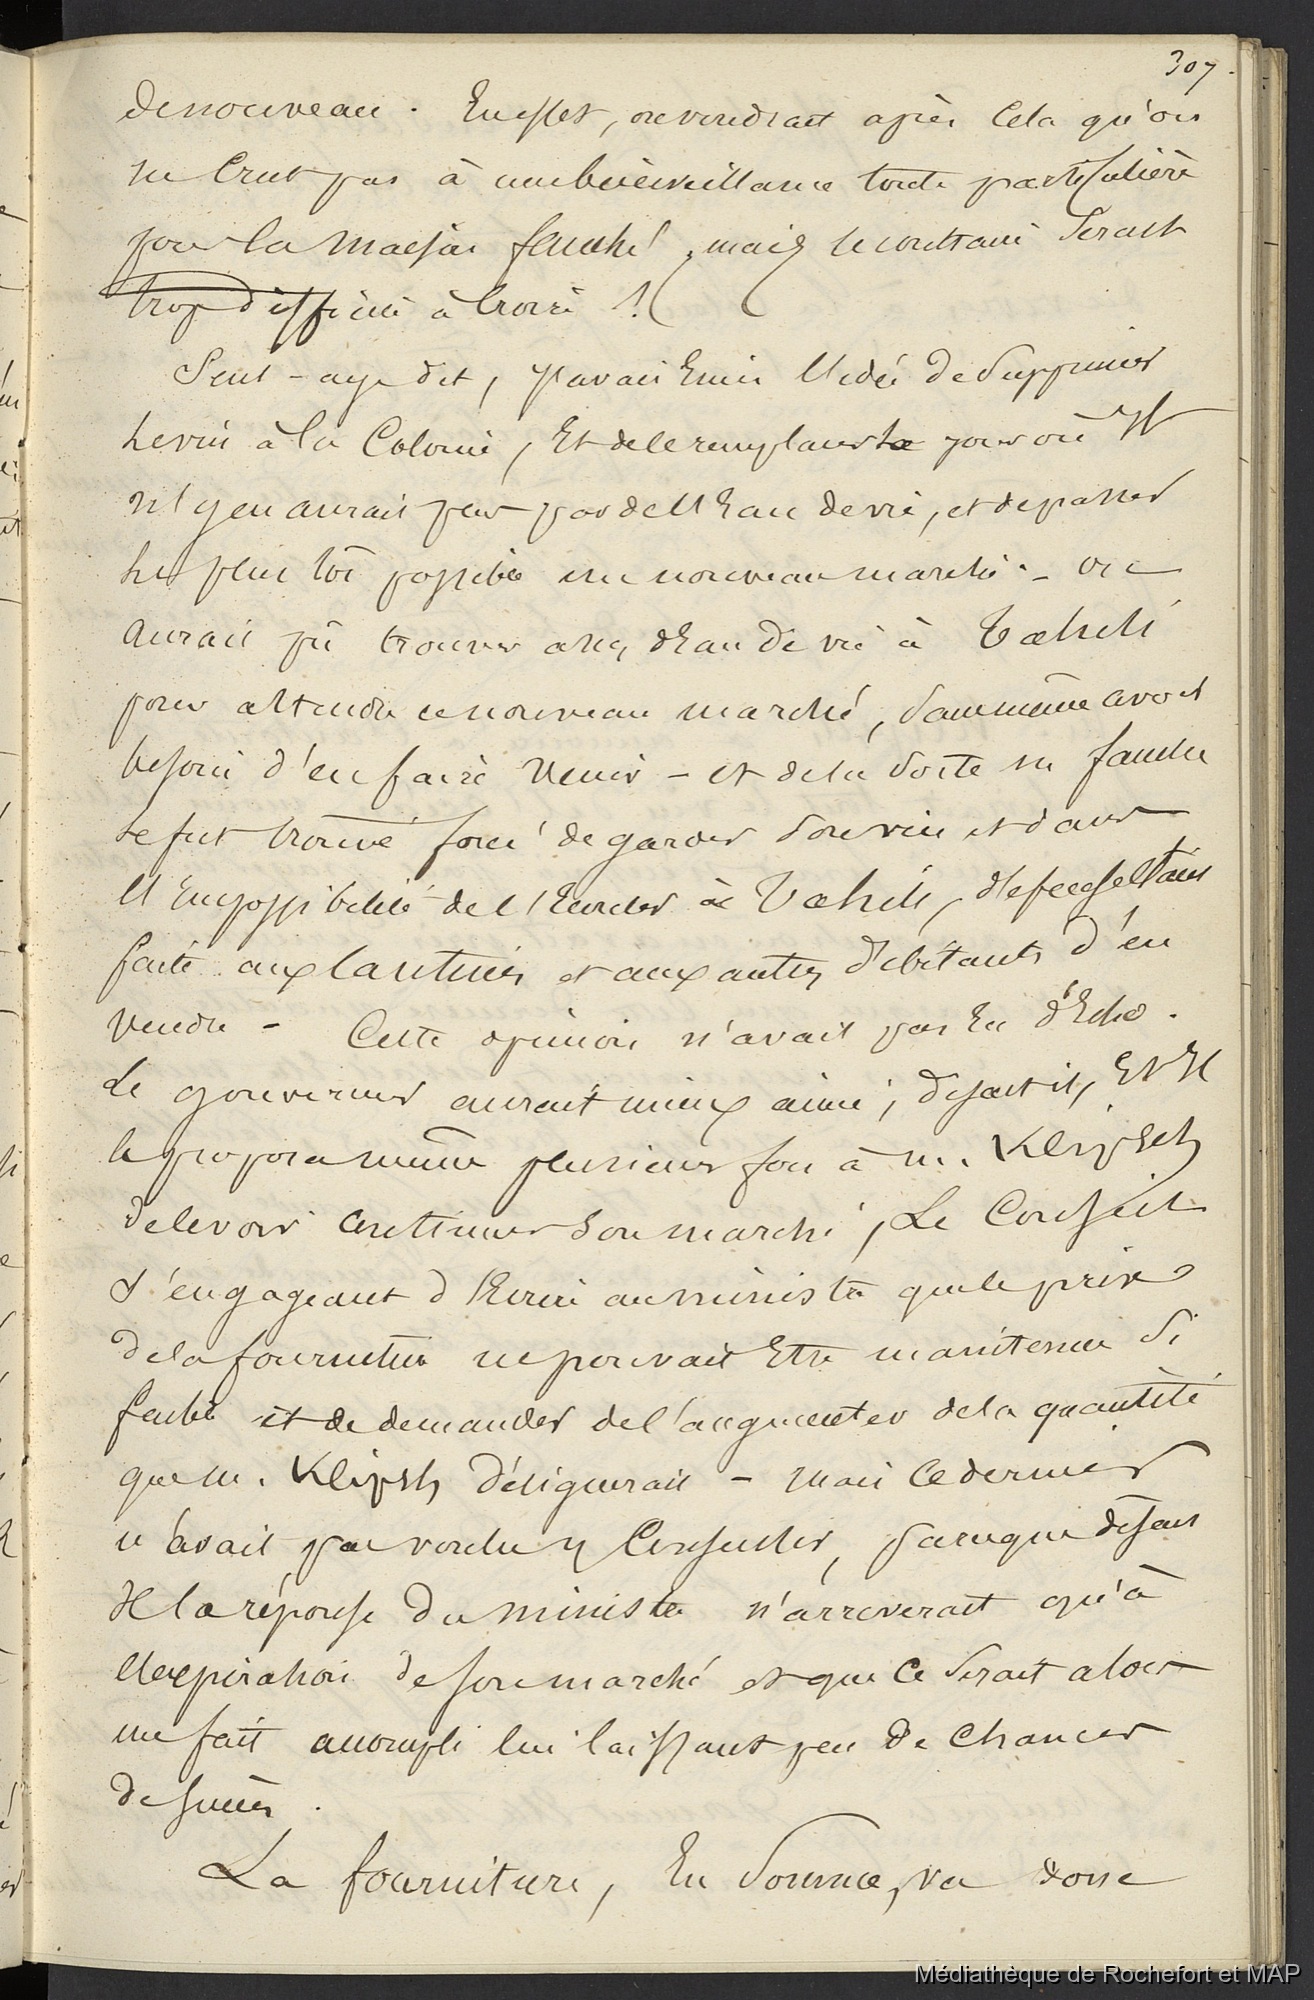 307.
de nouveau. En effet, on voudrait après cela qu'on
ne crut pas à une bienveillance toute particulière
pour la maison fauché, mais le contraire serait
trop difficile à croire !
Sent-aye dit, j'avais Émis l'idée de supprimer
le vin à la Colonie, Et de le remplacer le jour où Il
n'y en aurait plus par de l'Eau de vie, et de passer
le plus tôt possible un nouveau marché. - on
aurait pû trouver assez d'Eau de vie à Taheiti
pour attendre ce nouveau marché, sans même avoir
besoin d'en faire venir - et de la sorte m fauché
se fut trouvé forcé de garder son vin et dans
l'Impossibilité de l'Ecouler à Taheiti, défense étant
faite aux cantiniers et aux autres débitants d'en
vendre - Cette opinion n'avait pas Eu d'Echo.
Le gouverneur aurait mieux aimé, disait il, Et Il
le proposa même plusieurs fois à m. Klipsch
de le voir continuer son marché, Le Conseil
s'engageant d'Ecrire au ministre que le prix
de la fourniture ne pouvait Etre maintenu si
faible et de demander de l'augmenter de la quantité
que m. Klipsch désignerait - mais ce dernier
n'avait pas voulu y Consentir, parceque disait
il la réponse du ministre n'arriverait qu'à
l'expiration de son marché et que ce serait alors
un fait accompli lui laissant peu de chances
de succès.
La fourniture, En somme, va donc
Médiathèque de Rochefort et MAP